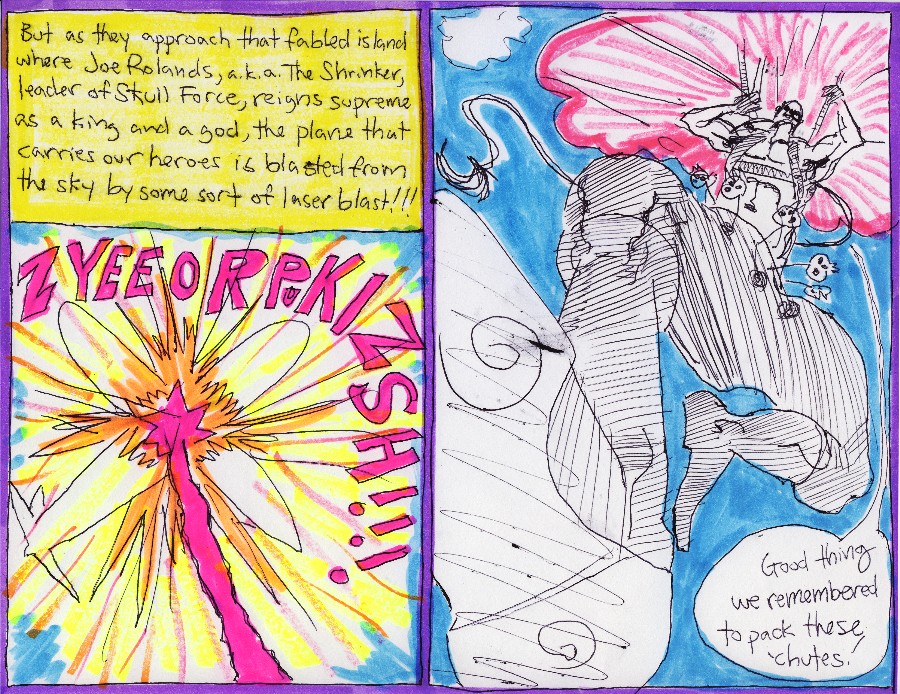 But as they approach that fabled island
where Joe Rolands, a.k.a. The Shrinker,
leader of Skull Force, reigns supreme
as a king and a god, the plane that
carries our heroes is blasted from
the sky by some sort of laser blast!!!
ZYEEORPUKIZSHiii!
Good thing
we remembered
to pack these
'chutes.